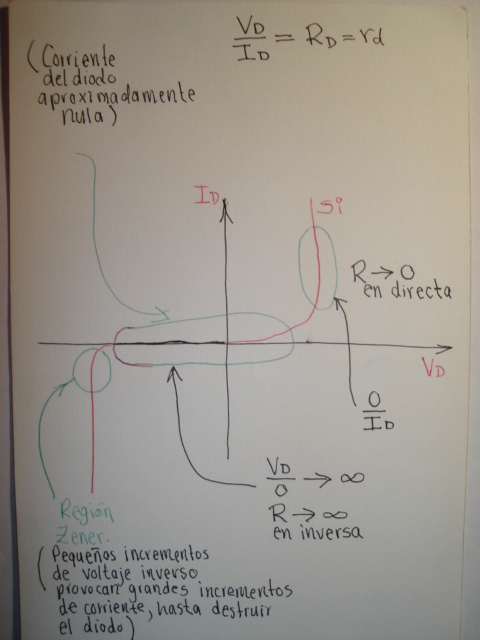 VD/ID = RD = rd
(Corriente
del diodo
aproximadamente
nula)
ID
Si
R → 0
en directa
VD
0/ID
VD/0 → ∞
R → ∞
en inversa
Región
Zener.
(Pequeños incrementos
de voltaje inverso
provocan grandes incrementos
de corriente, hasta destruir
el diodo)